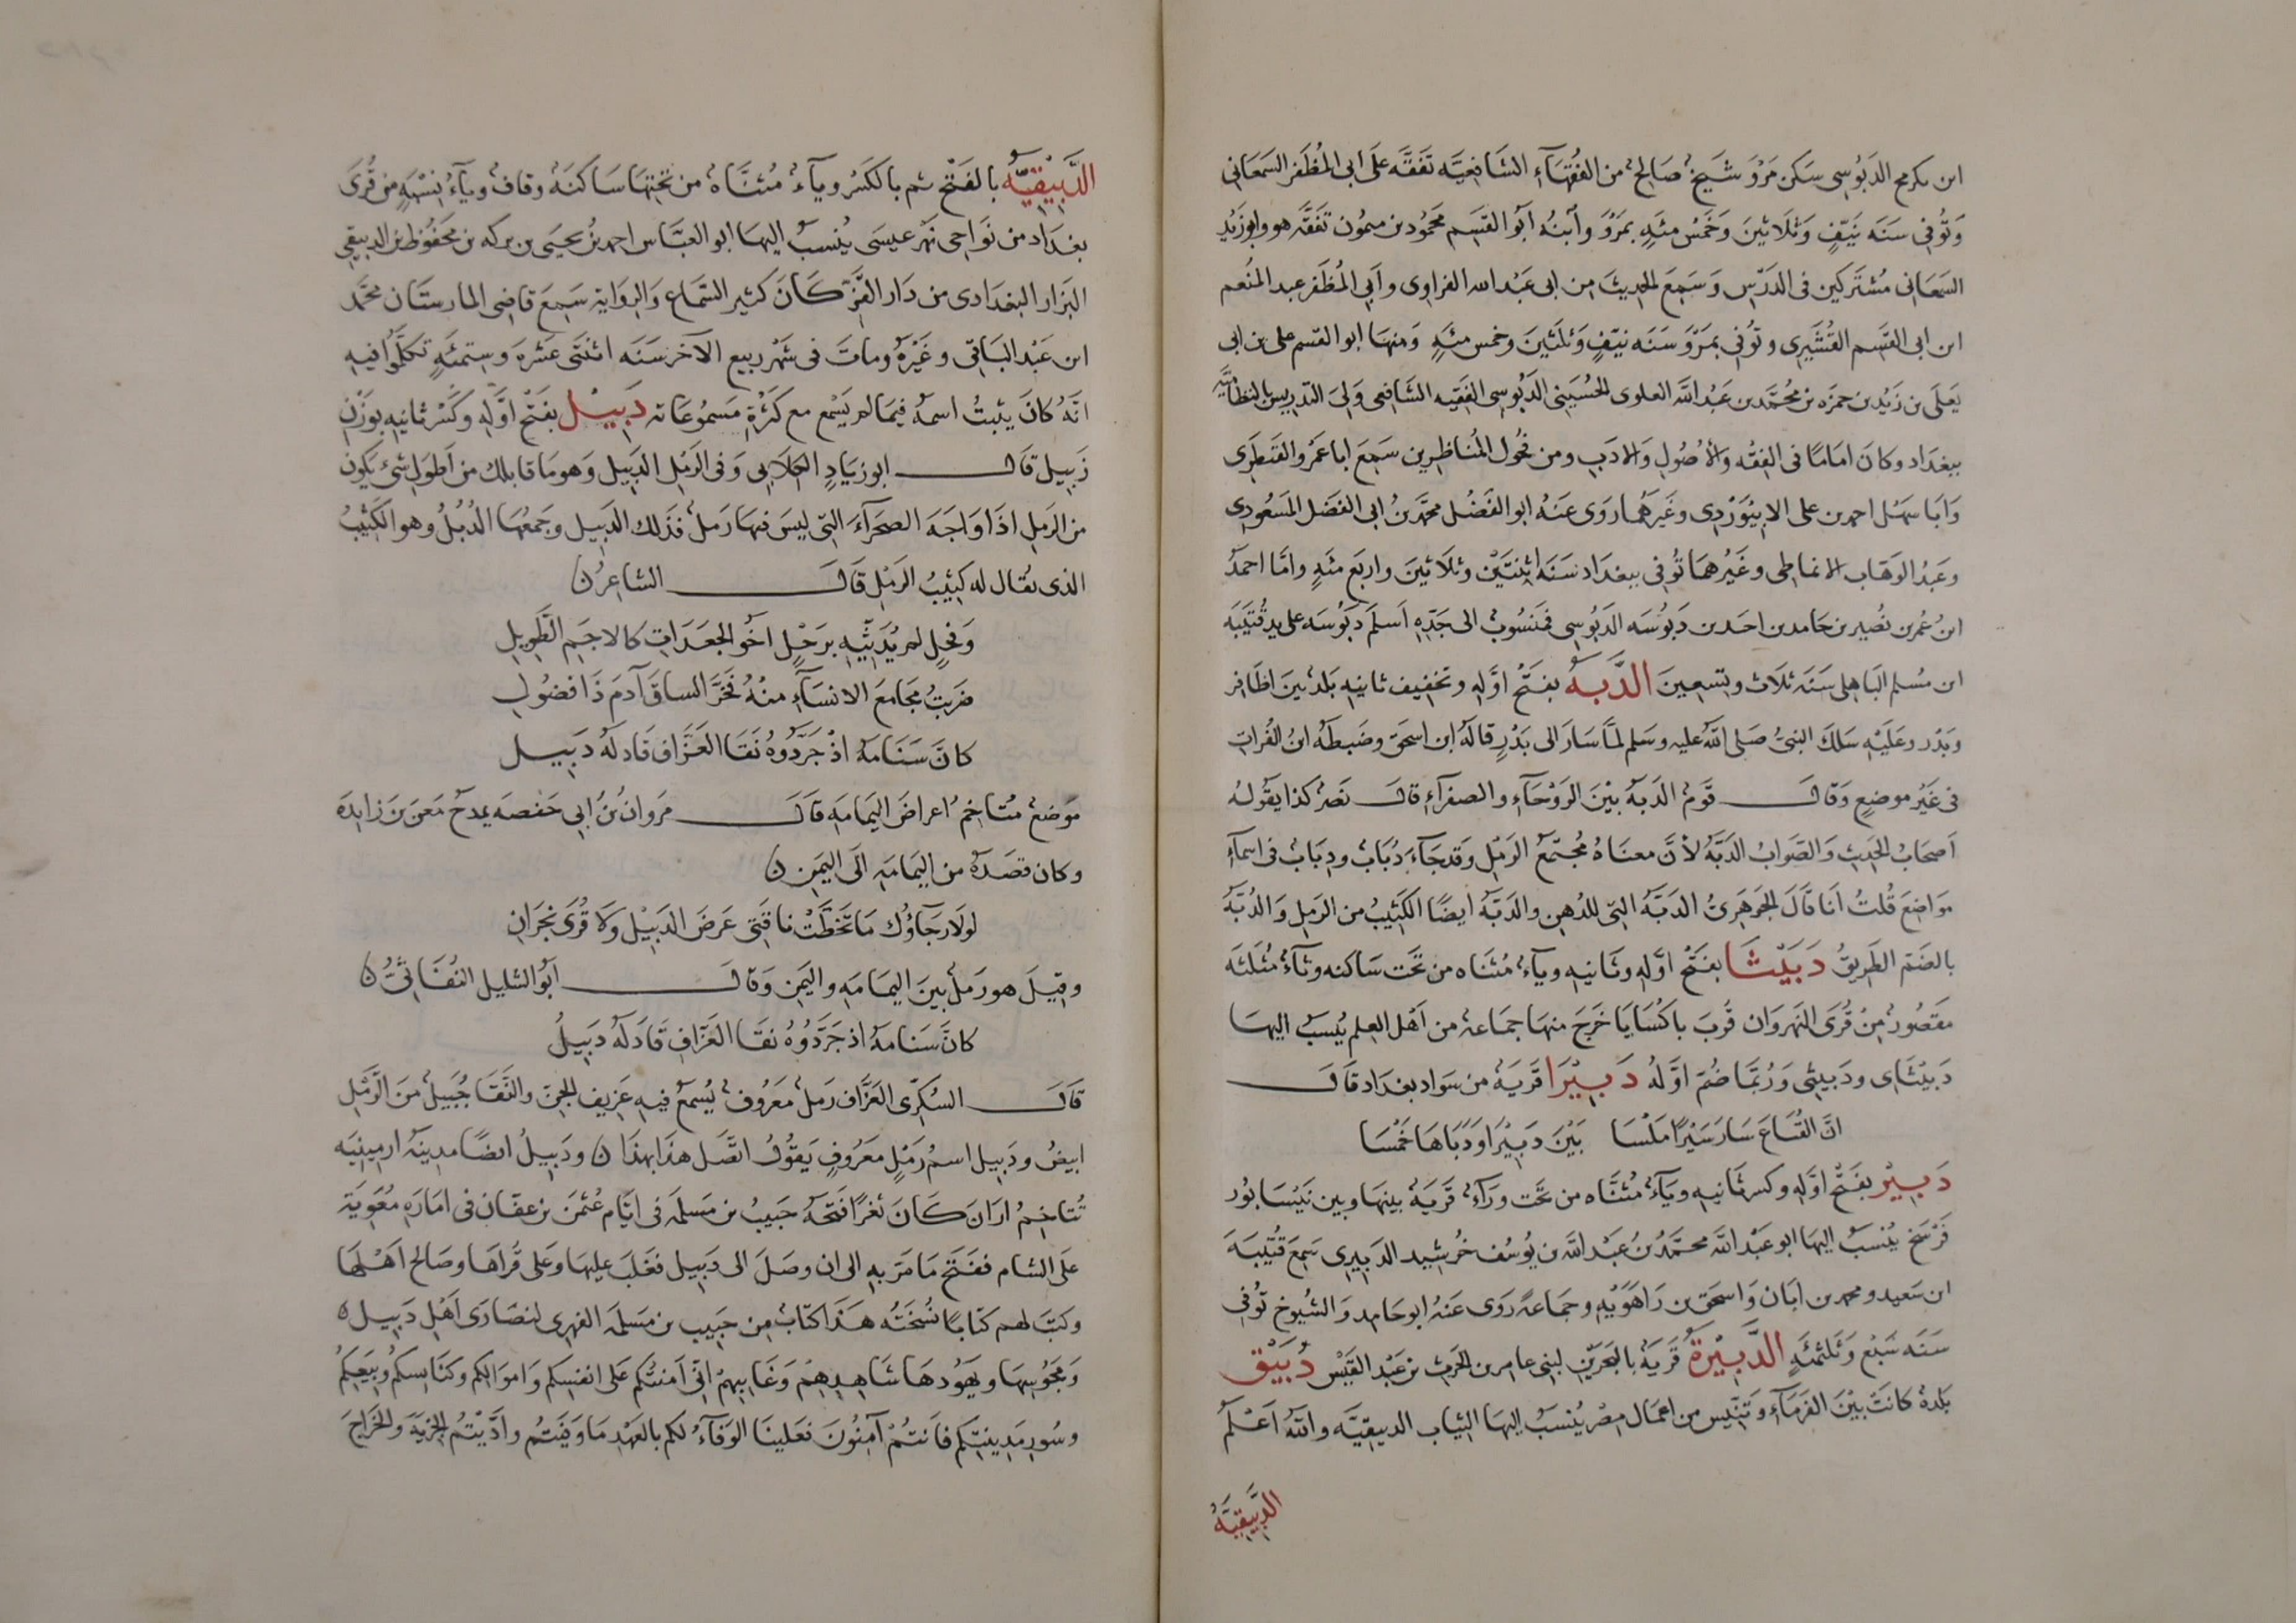 ابن مكرمح الدَبُوسى سَكن مَرْوَ شَيخٌ صَالحٌ من الفُقهَاءِ الشَافِعيَّه تَفَقَّه عَلَى ابى المُظَفر السَمعَانى
وَتُوُفى سَنَه نيّفٍ وَثَلَاثينَ وَخَمْسُ مئَهٍ بمَرْوَ وَابنُه ابَو القَسَم محَمُود بن ميمُون تفَقَّه هو وابوزَيْدٍ
السَمعَانى مُشتَركين فى الدَرْسِ وَسَمِعَ الحديثَ من ابى عَبْد الله الفراوى وابَى المُظَفر عبد المنُعم
ابن ابى القَسَم القُشَيرى وتوُفى بمَرْوَ سَنَه نيّفٍ وَثلَثينَ وخمس مئَهٍ وَمنهَا ابو القسم على بن ابى
يَعلَى بن زَيْد بن حمزَه بن محُمَّد بن عَبْد الله العلوى الحُسَينى الدَبُوسى الفَقيه الشَافِعى وَلىَ التدريس بالنظاميَّه
ببغدَاد وكانَ امَامًا فى الفِقه والأصُولِ والادَبِ ومن فحُول المُناظِرين سَمِعَ ابا عَمْرو القنطَرى
وَابَا سَهْل احمد بن على الابيَوَرْدى وغَيَرهُما رَوى عَنهُ ابو الفَضْل محمَّد بنُ ابى الفَضَل المسَعُودى
وعَبْدُ الوَهّاب الانماطى وغَيْرهمَا تُوفى ببغدَاد سَنَه اثنتَيْن وثلَاثينَ واربعَ مئَهٍ وامَّا احمدُ
ابنُ عُمر بن نُصَير بن حَامد بن احمد بن دَبُوسَه الدَبُوسِى فمَنسُوبٌ الى جَدّه اسَلَم دَبُوسَه على يد قُتَيبَه
ابن مُسلم البَاهِلى سَنَه ثلَاث وتسِعينَ الدَّبَه بفَتح اوَّله وتخفيف ثانيه بَلدٌ بيَن اظَافِر
وَبَدْر وعَلَيْه سَلكَ النبىُّ صَلى الله عليه وسَلم لمَّا سَارَ الى بَدْرٍ قالهُ ابن اسحَق وضَبطَهُ ابنُ الفُرات
فى غيَر موضِعٍ وَقَالَ قوَمٌ الدَبَه بيْنَ الرَوْحَاءِ والصفرَاءِ قالَ نصَرٌ كذا يقَولهُ
اَصحَابُ الحَديثِ وَالصَوَابُ الدَبَّهُ لأنَّ معنَاهُ مجُتمَعُ الرَمْل وَقد جَاءَ دُبَابٌ ودبَابٌ فى اسمَاء
موَاضعَ قُلتُ انَا قَالَ الجَوهَرىُّ الدَبَّه التى للدُهن والدَبَّهُ ايضًا الكَثيبُ من الرَمل وَالدُبَّهُ
بالضَم الطَريقُ دَبَيْثَا بفَتْح اوَّله وثَانيه ويَاءٌ مُثنَاه من تحَت سَاكنه وثآءٌ مُثلثَه
مقَصُورٌ مِنْ قُرى النَهرَوَان قُربَ باكُسَايَا خَرَجَ منهَا جمَاعهٌ من اَهْل العِلم يُنسبُ اليهَا
دَبيثَاى ودَبيثى وَرُبَّمَا ضُم اوَّلهُ دَبيْرَا قَريَهٌ من سَوَاد بغدَاد قَالَ
انَّ القُسَاعَ سَارَ سَيْرًا مَلْسَا بَيْنَ دَبيْرَا وَدَبَاهَا خَمْسَا
دَبيْر بفَتْح اوَّله وكسر ثَانيه ويآءٌ مُثنَّاه من تحَت ورَآءٌ قَريَهٌ بينهَا وبين نَيْسَابُور
فَرْسَخ يُنْسَبُ اليَها ابو عَبْد الله محمَّدُ بنُ عَبْد الله بن يوُسُف خُرشيد الدَبيرى سَمِعَ قُتَيبَه
ابن سَعيد ومحمد بن ابَان وَاسحَق بن رَاهَوَيْه وجمَاعهً رَوى عَنهُ ابو حَامد وَالشُيوخ تَوُفى
سَنَه سَبْع وَثلثمئَهٍ الدَّبيْرَهُ قَريَهٌ بالبَحَريْن لبنى عامر بن الحَرث بن عَبْد القَيْس دَبيْق
بَلدهٌ كانَت بيْنَ الفَرَمَاءِ وَتنّيس من اعمَال مِصْر يُنسَبُ اليهَا الثيَاب الدبيقيَّه والله اَعْلَم
الدَّبيقِيَّه
الدَّبيْقِيَّه بالفَتْح ثم بالكَسْر ويَاءٌ مُثنَّاه من تحتهَا سَاكنَه وقَافٌ ويَاءُ نِسْبَهٍ من قُرَى
بغدَاد من نوَاحى نَهْر عيسَى يُنسبُ اليهَا ابو العَبَّاس احمد بن يحيَى بن بركه بن محَفُوظ بن الدبيقى
البَزار البغدَادى من دَار القَزِّ كَانَ كثير السَّمَاع وَالروَاية سَمِعَ قاضِى المارستَان محَمَّد
ابن عَبْد البَاقى وغَيْرَهُ ومات فى شَهْر ربيع الآخر سَنَه اثنتَى عَشْرَه وَستمئَهٍ تكلَّمُوا فيه
انّهُ كانَ يثبتُ اسمهُ فيمَا لم يَسْمع مع كَثْرَةِ مَسمُوعَاته دَبيْل بفَتْح اوَّله وكَسْر ثانيه بوَزْنِ
زَبيل قَالَ ابو زيَادٍ الكلَابى وَفى الرَمل الدَبيل وَهو مَا قابلك من اَطوَلِ شَئٍ يَكونُ
من الرَمل اذَا وَاجَهَ الصحرَآءَ التى ليسَ فيهَا رَملٌ فذَلك الدَبيل وجَمعهَا الدُبُلُ وهو الكَثيبُ
الذى يُقال له كثيبُ الرَمْل قَالَ الشاعرُ
وَفحلٍ لم يُدَيّثيهِ برَحْلٍ اخُو الجعَدَات كالاجَم الطَّويل
ضَربتُ مجَامعَ الانسَآءِ منْهُ فخَرَّ السَاقَ آدمَ ذَا فضُول
كانَّ سَنَامهُ اذْ جَرَّدُوهُ نقَا العَزَّاف قَادَ لهُ دَبيل
موَضعٌ متَاخمُ اعراضَ اليمَامَه قَالَ مَروَانُ بنُ ابى حَفصَه يمدحُ مَعَن بَن زَايدَه
وكان قصَدَهُ من اليمَامَه الى اليَمَن
لولَا رَجَاؤُك مَا تخَطَّتْ ناقَتى عَرضَ الدَبيْل وَلَا قُرَى نجَرَان
وقيلَ هو رَملٌ بينَ اليمَامَه واليَمن وقَالَ ابُو الشليل النُفَاثىُّ
كانَّ سَنامهُ اذ جَرَّدُوهُ نقَا العَزّافِ قَادَ لهُ دَبيلُ
قَالَ السُكّرى العَزَّاف رَملٌ معَرُوفٌ يُسمعُ فيه عَزيف الجن والنَّقَا جُبَيلٌ منَ الرَّمْل
ابيضُ ودَبيل اسمُ رَمْلٍ معَرُوفٍ يَقُولُ اتصَّل هذَا بهذَا ودَبيلُ ايضًا مدينَهٌ ارمينيَه
تُتَاخمُ ارَان كَانَ ثغْرًا فتَحَهُ حَبيبُ بن مَسلَمَه فى ايَّام عُثمَنَ بن عفَّان فى امَارَه مُعَويَة
عَلى الشام ففَتَح مَا مَرّ به الى ان وصَلَ الى دَبيل فغَلبَ عليهَا وَعَلى قُراهَا وصَالح اهَلهَا
وكتَبَ لهم كتابًا نُسْخَتُه هَذَا كتَابٌ من حَبيب بن مَسْلمَه الفهرى لنصَارَى اَهْل دَبيل
وَمجَوُسِهَا ويَهُودهَا شَاهدِهمْ وَغَايبهمْ انّى اَمنتُكم عَلى انفسِكم وَاموَالِكم وكنَايسكُم وبيَعِكُم
وسُورِ مَدينتِكم فاَنتُمْ آمنُونَ وَعَلينَا الوَفَاءُ لكم بالعَهْد مَا وَفيتُم وادّيْتُم الجزيَةَ والخَرَاجَ